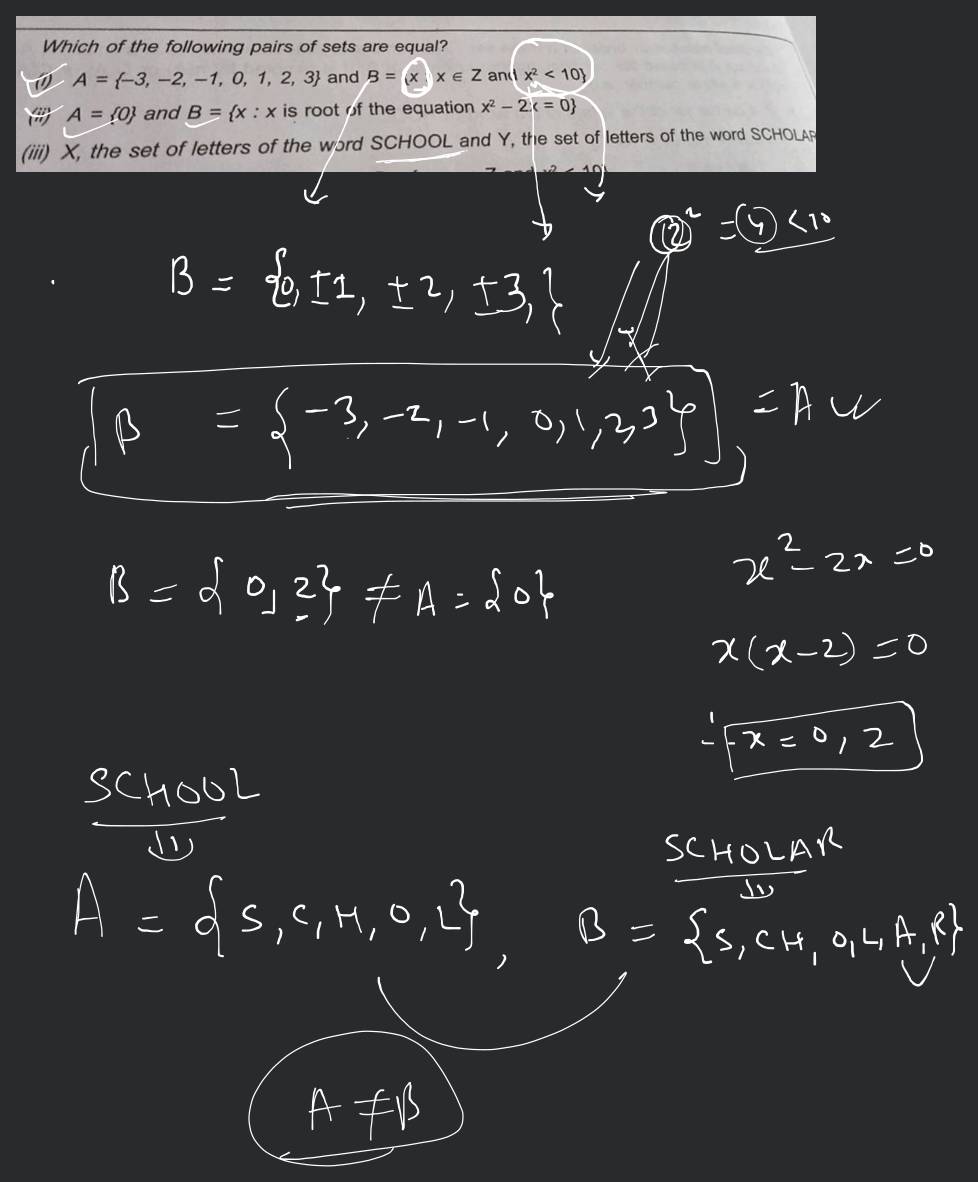 Which of the following pairs of sets are equal?
(i) A = {–3, –2, –1, 0, 1, 2, 3} and B = {x : x ∈ Z and x² < 10}
(ii) A = {0} and B = {x : x is root of the equation x² – 2x = 0}
(iii) X, the set of letters of the word SCHOOL and Y, the set of letters of the word SCHOLAR
(2)² = 4 < 10
B = {0, ±1, ±2, ±3,}
B = {-3, -2, -1, 0, 1, 2, 3} = A
x² - 2x = 0
B = {0, 2} ≠ A = {0}
x(x-2) = 0
x = 0, 2
SCHOOL
SCHOLAR
A = {S, C, H, O, L}, B = {S, C H, O, L, A, R}
A ≠ B